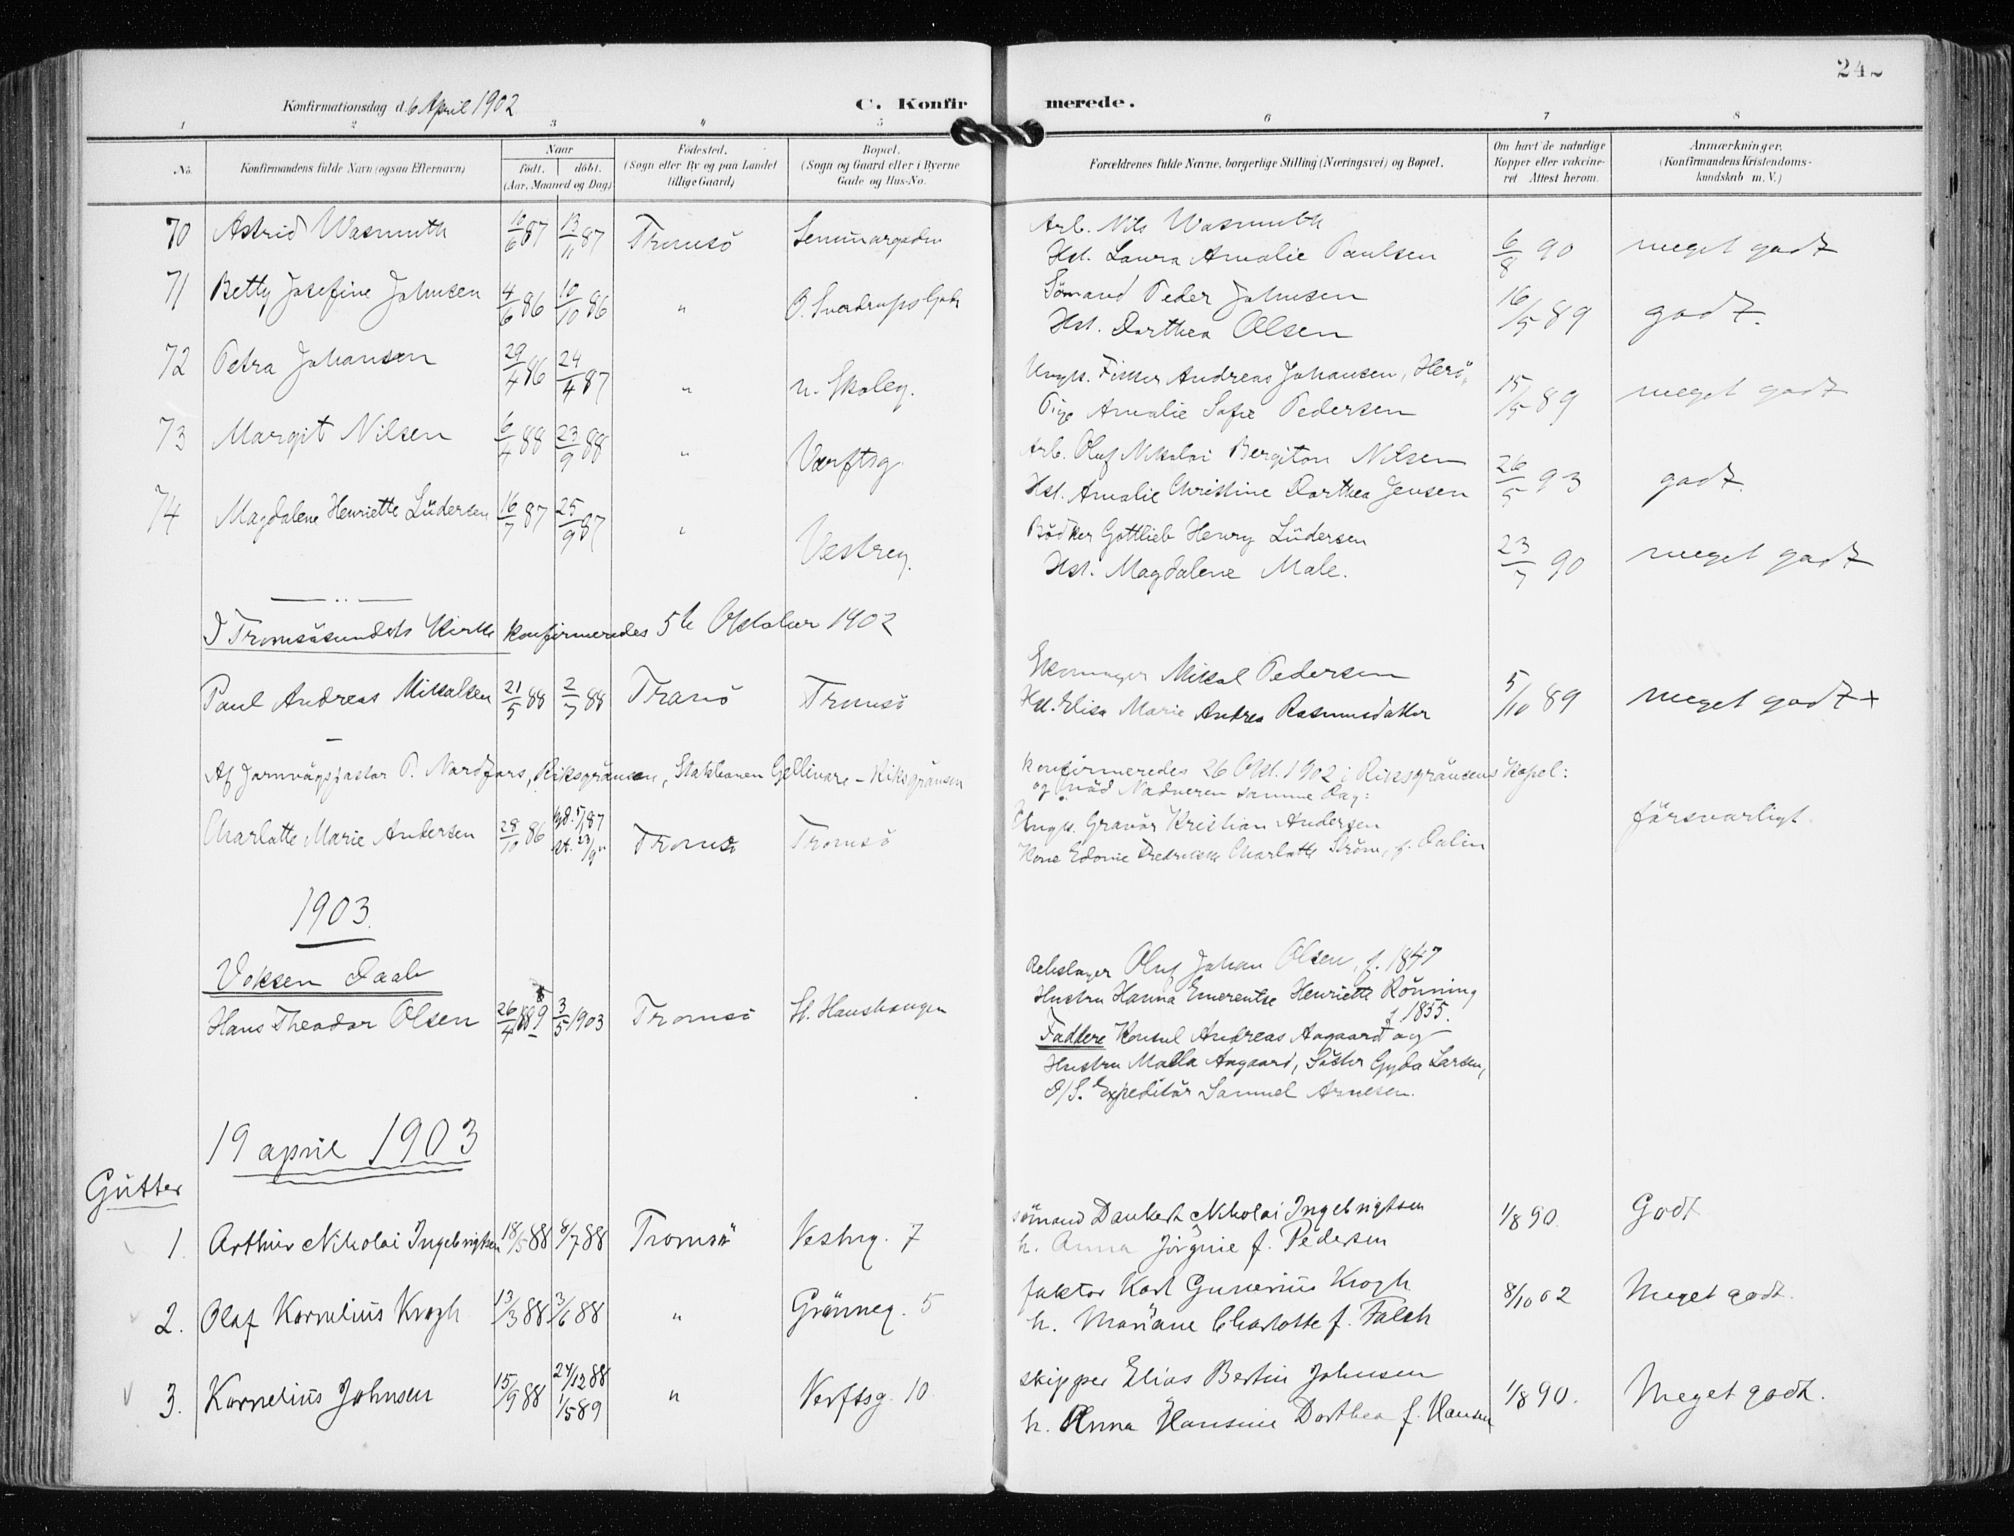 242
Konfirmationsdag d. 6 April 1902
C. Konfirmerede.
1 2 3 4 5 6 7 8
No.
Konfirmandens fulde Navn (ogsaa Efternavn)
Naar
födt. döbt.
(Aar, Maaned og Dag)
Födested.
(Sogn eller By og paa Landet
tillige Gaard)
Bopæl.
(Sogn og Gaard eller i Byerne
Gade og Hus-No.
Forældrenes fulde Navne, borgerlige Stilling (Næringsvei) og Bopæl.
Om havt de naturlige
Kopper eller vakcine-
ret Attest herom.
Anmærkninger.
(Konfirmandens Kristendoms-
kundskab m. V.)
70 Astrid Wasmuth 10/6 87 13/11 87 Tromsö Seminargaden Arb. Nils Wasmuth
Hst. Laura Amalie Paulsen 6/8 90 meget godt
71 Betty Josefine Johnsen 4/6 86 10/10 86 " O. Sverdrups Gade Sömand Peder Johnsen
Hst. Dorthea Olsen 16/5 89 godt.
72 Petra Johansen 29/4 86 24/4 87 " n. Skoleg. Ungk. Fisker Andreas Johansen, Herö,
Pige Amalie Sofie Pedersen 15/5 89 meget godt
73 Margit Nilsen 6/4 88 23/9 88 " Værftsg. Arb. Oluf Nikolai Bergiton Nilsen
Hst. Amalie Christine Dorthea Jensen 26/5 93 godt.
74 Magdalene Henriette Lüdersen 16/7 87 25/9 87 " Vestreg. Bödker Gottlieb Henry Lüdersen
Hst. Magdalene Male. 23/7 90 meget godt
I Tromsösundets Kirke konfirmeredes 5te Oktober 1902
Paul Andreas Mikalsen 21/5 88 2/7 88 Tranö Tromsö Skomager Mikal Pedersen
Hst. Elisa Marie Andrea Rasmusdatter 5/10 89 meget godt +
Af Jarnvägspastor P. Nordfors, Riksgränsen, Staktionen Gellivare - Riksgränsen
konfirmeredes 26 Okt. 1902 i Riksgränsens Kapel:
og nöd Nadveren samme Dag:
Charlotte Marie Andersen 28/10 86 hjd. 5/1 87 st. 23/9 " Tromsö Tromsö Ungk. Gravör Kristian Andersen
Kone Edonie Fredrikke Charlotte Ström, f. Dalin försvarligt.
1903.
Voksen Daab
Hans Theodor Olsen 26/4 1889 3/5 1903 Tromsö St. Hanshaugen Rebslager Oluf Johan Olsen, f. 1847
Hustru Hanna Emerentse Henriette Rönning
f 1855.
Faddere Konsul Andreas Aagaard og
Hustru Malla Aagaard, Söster Gyda Larsen,
D/S. Expeditör Samuel Arnesen.
19 april 1903
Gutter
1. Arthur Nikolai Ingebrigtsen 18/5 88 8/7 88 Tromsö Vestrg. 7 sömand Dankert Nikolai Ingebrigtsen
h. Anna Jörgine f. Pedersen 1/8 90. Godt
2. Olaf Kornelius Krogh 13/3 88 3/6 88 " Grönneg. 5 faktor Karl Gunerius Krogh
h. Mariane Charlotte f. Falch 8/10 02 Meget godt.
3. Kornelius Johnsen 15/9 88 24/12 88 1/5 89 " Verftsg. 10. skipper Elias Bertin Johnsen
h. Anna Hansine Dorthea f. Hansen 1/8 90. Meget godt.